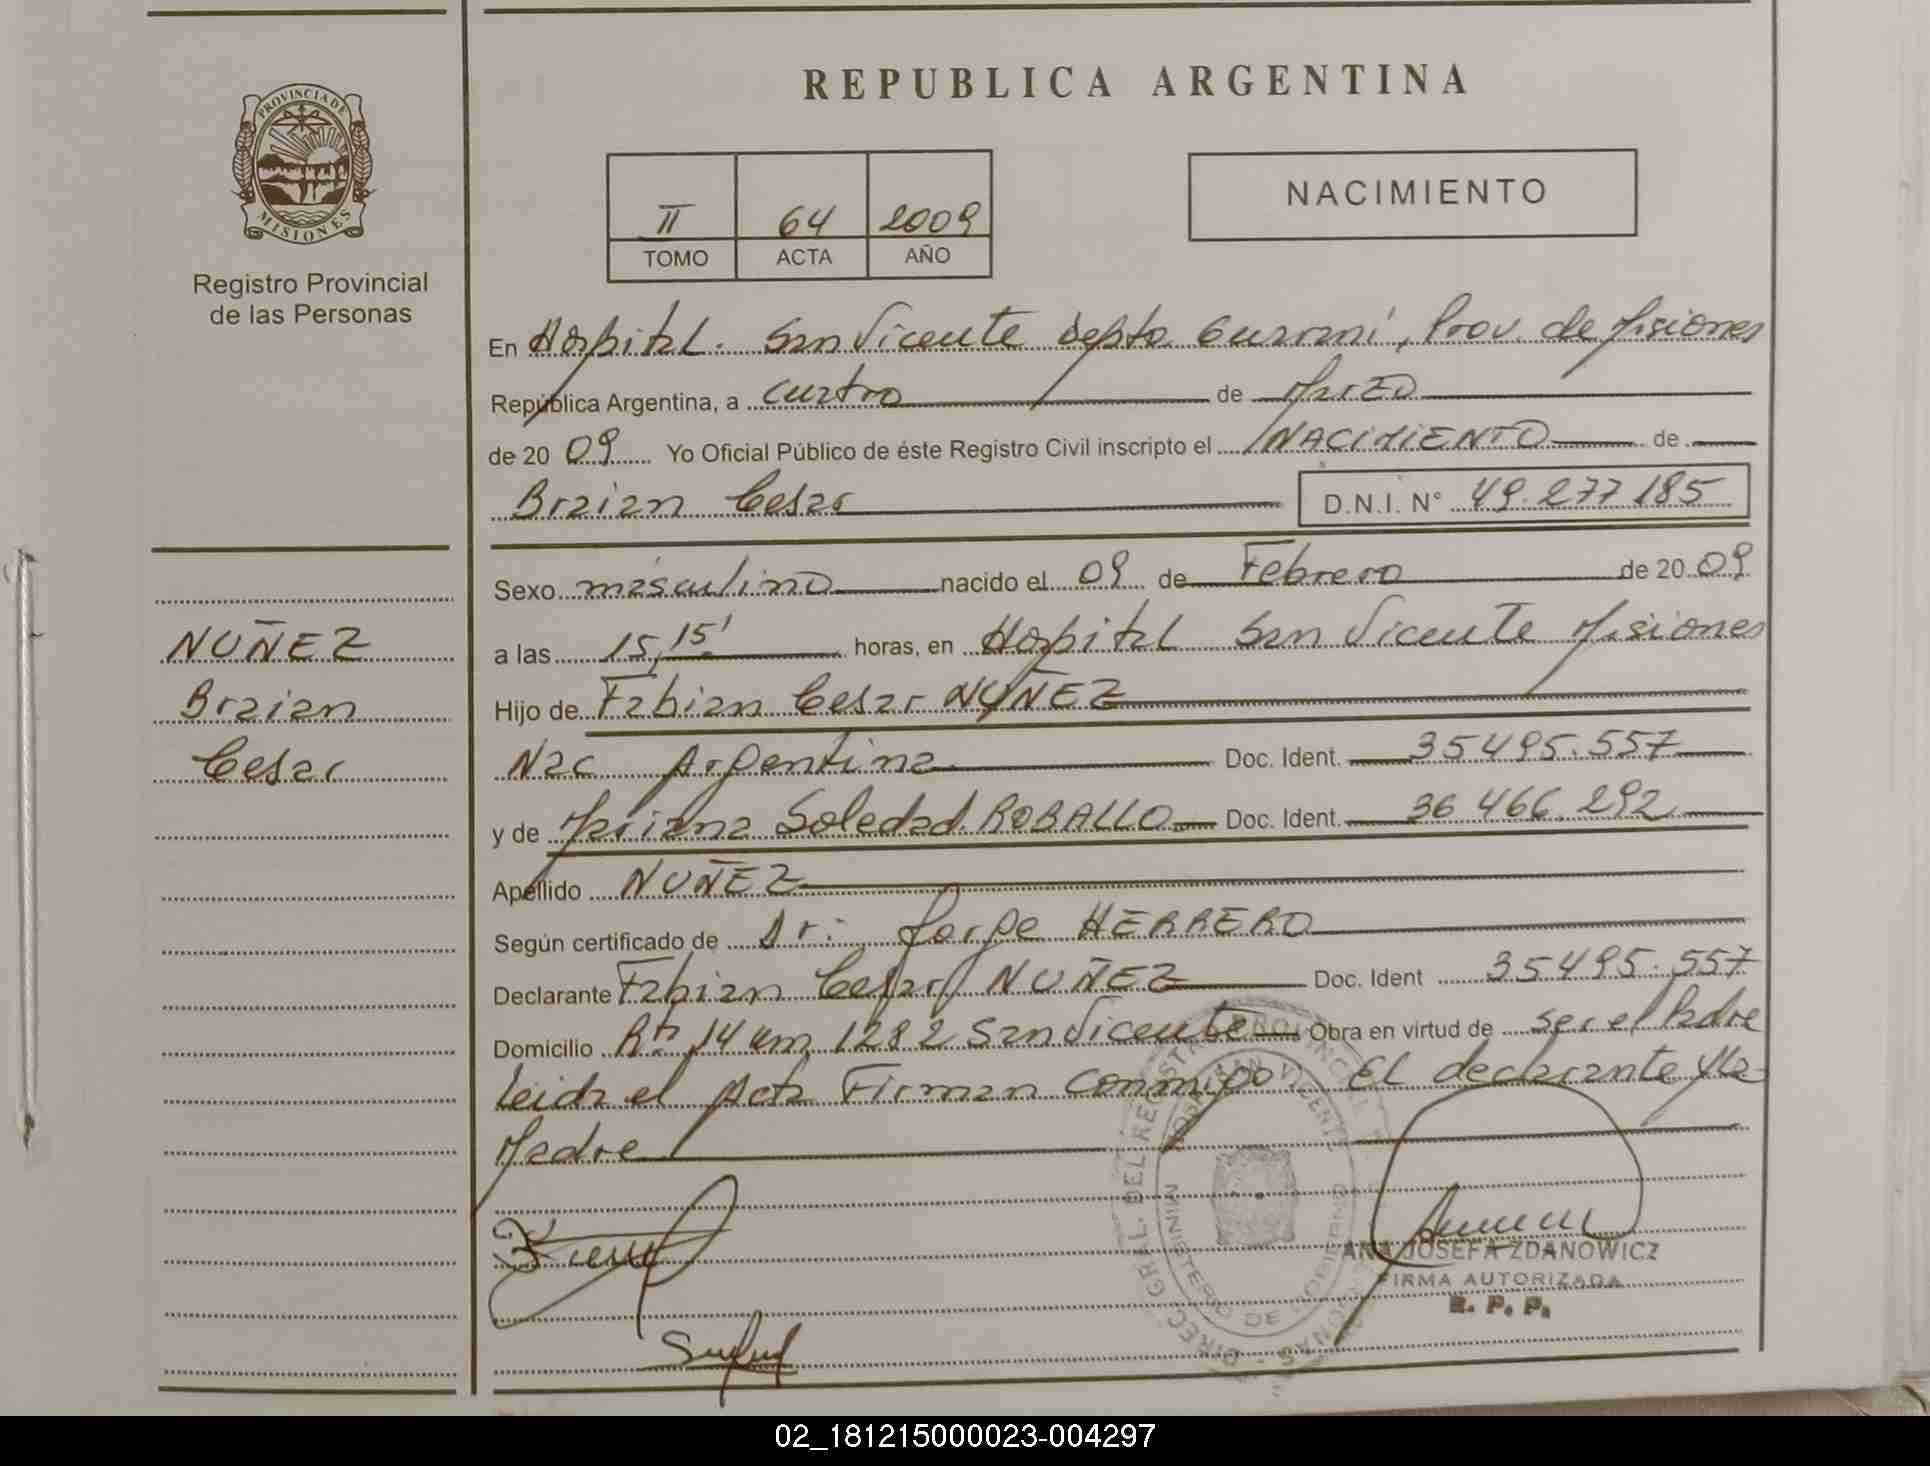 REPUBLICA ARGENTINA
PROVINCIA DE
MISIONES
Registro Provincial
de las Personas
II 64 2009
TOMO ACTA AÑO
NACIMIENTO
En Hospital. San Vicente Depto Guarani, Prov. de Misiones
República Argentina, a cuatro de Marzo
de 20 09 Yo Oficial Público de éste Registro Civil inscripto el NACIMIENTO de
Braian Cesar D.N.I. N° 49.277.185
Sexo masculino nacido el 09 de Febrero de 20 09
NUÑEZ
Braian
Cesar
a las 15,15' horas, en Hospital San Vicente Misiones
Hijo de Fabian Cesar NUÑEZ
Nac Argentina Doc. Ident. 35495.557
y de Mariana Soledad. ROBALLO Doc. Ident. 36 466.292
Apellido NUÑEZ
Según certificado de Dr: Jorge HERRERO
Declarante Fabian Cesar NUÑEZ Doc. Ident 35495.557
Domicilio Rta 14 km 1282 San Vicente Obra en virtud de ser el Padre
Leida el Acta Firman conmigo El declarante y la
Madre
DIREC. GRAL. DEL REGISTRO PROVINCIAL PERSONAS
SAN VICENTE
MINISTERIO DE GOBIERNO
ANA JOSEFA ZDANOWICZ
FIRMA AUTORIZADA
R. P. P.
02_181215000023-004297